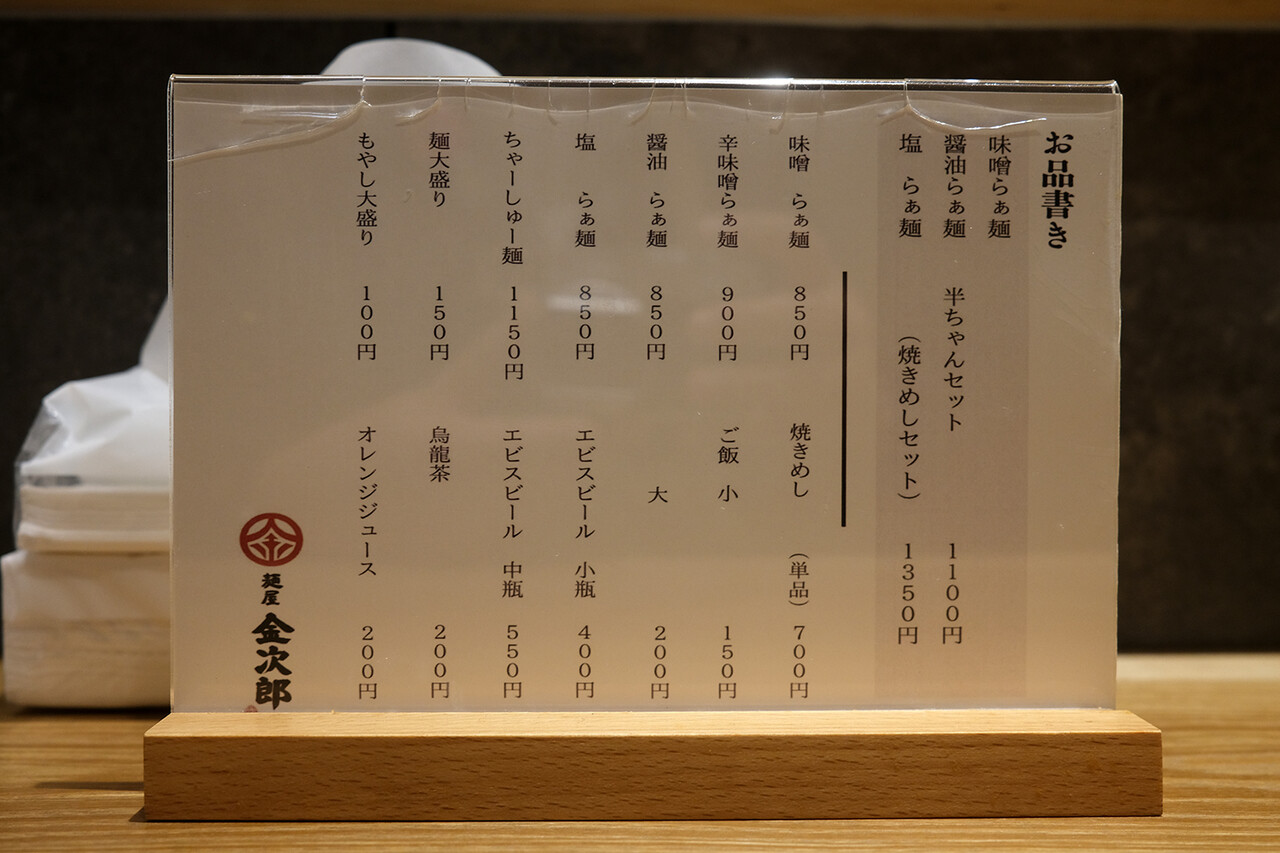 お品書き
味噌らぁ麺
醤油らぁ麺 半ちゃんセット 1100円
塩 らぁ麺 （焼きめしセット） 1350円
味噌 らぁ麺 850円
辛味噌らぁ麺 900円
醤油 らぁ麺 850円
塩 らぁ麺 850円
ちゃーしゅー麺 1150円
麺大盛り 150円
もやし大盛り 100円
焼きめし （単品） 700円
ご飯 小 150円
大 200円
エビスビール 小瓶 400円
エビスビール 中瓶 550円
烏龍茶 200円
オレンジジュース 200円
麺屋 金次郎